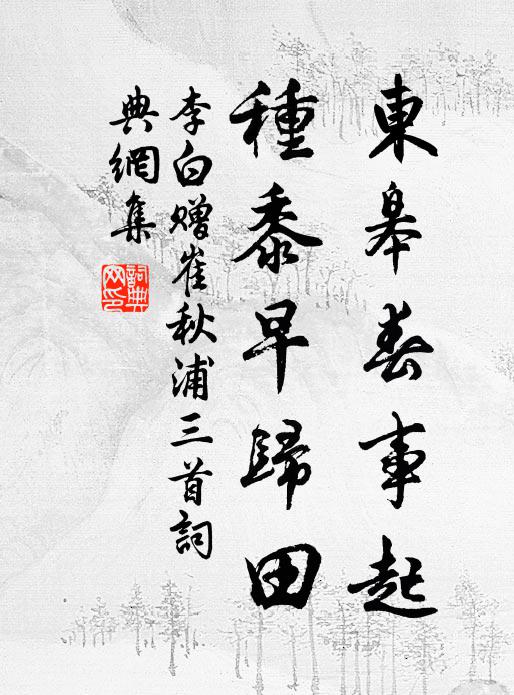 東皋春事起
種黍早歸田
李白贈崔秋浦三首詞
典網集
詞典
网印